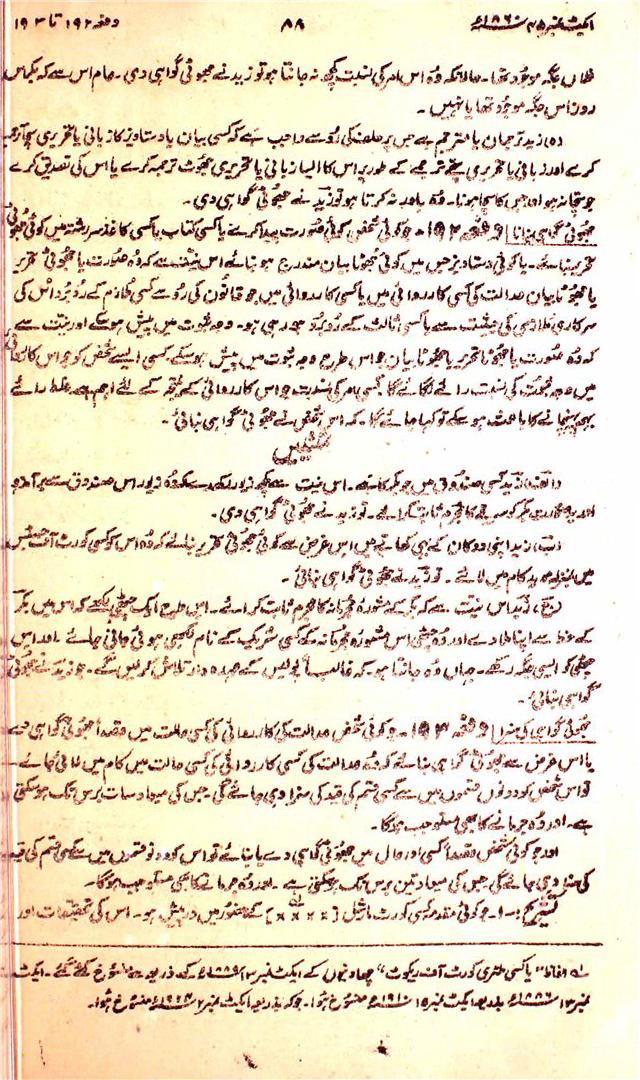 ایکٹ نمبر ۴۵ ۱۸۶۰ء ۸۸ دفعہ ۱۹۲ تا ۱۹۳
فلاں جگہ موجود تھا۔ حالانکہ وہ اس امر کی نسبت کچھ نہ جانتا ہو تو زید نے جھوٹی گواہی دی۔ عام اس سے کہ بکر اس
روز اس جگہ موجود تھا یا نہیں۔
(ہ) زید ترجمان یا مترجم ہے جس پر حلف کی رو سے واجب ہے کہ کسی بیان یا دستاویز کا زبانی یا تحریری سچا ترجمہ
کرے اور زبانی یا تحریری سچے ترجمے کے طور پر اس کا ایسا زبانی یا تحریری جھوٹ ترجمہ کرے یا اس کی تصدیق کرے
جو سچا نہ ہو اور جس کا سچا ہونا۔ وہ باور نہ کرتا ہو تو زید نے جھوٹی گواہی دی۔
جھوٹی گواہی بنانا دفعہ ۱۹۲۔ جو کوئی شخص کوئی صورت پیدا کرے یا کسی کتاب یا کسی کاغذ سررشتہ میں کوئی جھوٹی
تحریر بنائے۔ یا کوئی دستاویز جس میں کوئی جھوٹا بیان مندرج ہو بنائے اس نیت سے کہ وہ صورت یا جھوٹی تحریر
یا جھوٹا بیان عدالت کی کسی کارروائی میں یا کسی کارروائی میں جو قانون کی رو سے کسی ملازم کے روبرو اس کی
سرکاری ملازمی کی حیثیت سے یا کسی ثالث کے روبرو ہو رہی ہو۔ وجہ ثبوت میں پیش ہو سکے اور نیت سے
کہ وہ صورت یا جھوٹا تحریر یا جھوٹا بیان جو اس طرح وجہ ثبوت میں پیش ہو سکے۔ کسی ایسے شخص کو جو اس کارروائی
میں وجہ ثبوت کی نسبت رائے لگائے گا کسی امر کی نسبت جو اس کارروائی کے نتیجہ کے لئے اہم ہے غلط رائے
بہم پہنچانے کا باعث ہو سکے تو کہا جائے گا۔ کہ اس شخص نے "جھوٹی گواہی بنائی"۔
تمثیلیں
(الف) زید کسی صندوق میں جو بکر کا ہے۔ اس نیت سے کچھ زیور رکھ دے کہ وہ زیور اس صندوق سے برآمد ہو
اور یہ بکر کو سرقے کا مجرم ثابت کرائے۔ تو زید نے جھوٹی گواہی دی۔
(ب) زید اپنی دوکان کے بہی کھاتے میں اس غرض سے کوئی جھوٹی تحریر بنائے کہ وہ اس کو کسی کورٹ آف جسٹس
میں بمنزلہ کام میں لائے۔ تو زید نے جھوٹی گواہی بنائی۔
(ج) زید اس نیت سے کہ بکر کے مشورہ مجرمانہ کا مجرم ثابت کرائے۔ اس طرح ایک چٹھی لکھے کہ اس میں بکر
کے خط سے اپنا ملا دے اور وہ چٹھی اس مشورہ مجرمانہ کے کسی شریک کے نام لکھی ہوئی جانی جائے اور اس
چٹھی کو ایسی جگہ رکھے۔ جہاں وہ جانتا ہو۔ کہ غالباً پولیس کے عہدہ دار تلاش کریں گے۔ جو زید نے جھوٹی
گواہی بنائی۔
جھوٹی گواہی کی سزا دفعہ ۱۹۳۔ جو کوئی شخص عدالت کی کارروائی کی کسی حالت میں قصداً جھوٹی گواہی دے
یا اس غرض سے جھوٹی گواہی بنائے کہ وہ عدالت کی کسی کارروائی کی کسی حالت میں کام میں لائی جائے۔
تو اس شخص کو دونوں قسموں میں سے کسی قسم کی قید کی سزا دی جائے گی۔ جس کی میعاد سات برس تک ہو سکتی
ہے۔ اور وہ جرمانے کا بھی مستوجب ہوگا۔
اور جو کوئی شخص قصداً کسی اور حال میں جھوٹی گواہی دے یا بنائے تو اس کو دو قسموں میں سے کسی قسم کی قید
کی سزا دی جائے گی جس کی میعاد تین برس تک ہو سکتی ہے۔ اور وہ جرمانے کا بھی مستوجب ہوگا۔
تشریح ۱۔ جو کوئی مقدمہ کسی کورٹ مارشل [××××]۱ کے حضور میں درپیش ہو۔ اس کی تحقیقات اور
۱ الفاظ "یا کسی ملٹری کورٹ آف ریکوسٹ" چھاونیوں کے ایکٹ نمبر ۱۳ ۱۸۸۹ء کے ذریعے منسوخ کئے گئے۔ ایکٹ
نمبر ۱۳ ۱۸۸۹ء بذریعہ ایکٹ نمبر ۱۵ ۱۹۱۰ء منسوخ ہوا۔ جو کہ بذریعہ ایکٹ نمبر ۲ ۱۹۲۴ء منسوخ ہوا۔